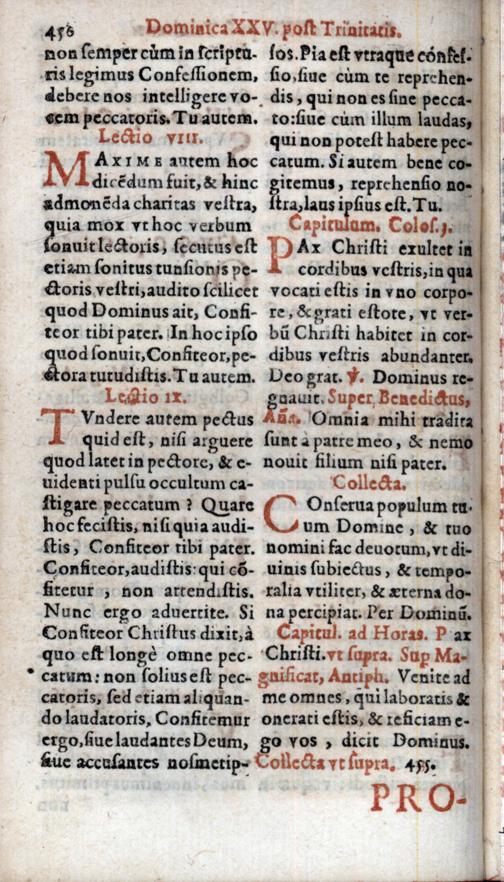 456 Dominica XXV. post Trinitatis.
non semper cùm in scriptu-
ris legimus Confessionem,
debere nos intelligere vo-
cem peccatoris. Tu autem.
Lectio viii.
MAXIME autem hoc
dicēdum fuit, & hinc
admonēda charitas vestra,
quia mox vt hoc verbum
sonuit lectoris, secutus est
etiam sonitus tunsionis pe-
ctoris vestri, audito scilicet
quod Dominus ait, Confi-
teor tibi pater. In hoc ipso
quod sonuit, Confiteor, pe-
ctora tutudistis. Tu autem.
Lectio ix.
TVndere autem pectus
quid est, nisi arguere
quod latet in pectore, & e-
uidenti pulsu occultum ca-
stigare peccatum ? Quare
hoc fecistis, nisi quia audi-
stis, Confiteor tibi pater.
Confiteor, audistis: qui cō-
fitetur, non attendistis.
Nunc ergo aduertite. Si
Confiteor Christus dixit, à
quo est longè omne pec-
catum: non solius est pec-
catoris, sed etiam aliquan-
do laudatoris, Confitemur
ergo, siue laudantes Deum,
siue accusantes nosmetip-
sos. Pia est vtraque confes-
sio, siue cùm te reprehen-
dis, qui non es sine pecca-
to: siue cùm illum laudas,
qui non potest habere pec-
catum. Si autem bene co-
gitemus, reprehensio no-
stra, laus ipsius est. Tu.
Capitulum. Colos. j.
PAx Christi exultet in
cordibus vestris, in qua
vocati estis in vno corpo-
re, & grati estote, vt ver-
bū Christi habitet in cor-
dibus vestris abundanter.
Deo grat. ℣. Dominus re-
gnauit. Super Benedictus,
Aña. Omnia mihi tradita
sunt à patre meo, & nemo
nouit filium nisi pater.
Collecta.
COnserua populum tu-
um Domine, & tuo
nomini fac deuotum, vt di-
uinis subiectus, & tempo-
ralia vtiliter, & æterna do-
na percipiat. Per Dominū.
Capitul. ad Horas. Pax
Christi. vt supra. Sup Ma-
gnificat, Antiph. Venite ad
me omnes, qui laboratis &
onerati estis, & reficiam e-
go vos, dicit Dominus.
Collecta vt supra. 455.
PRO-